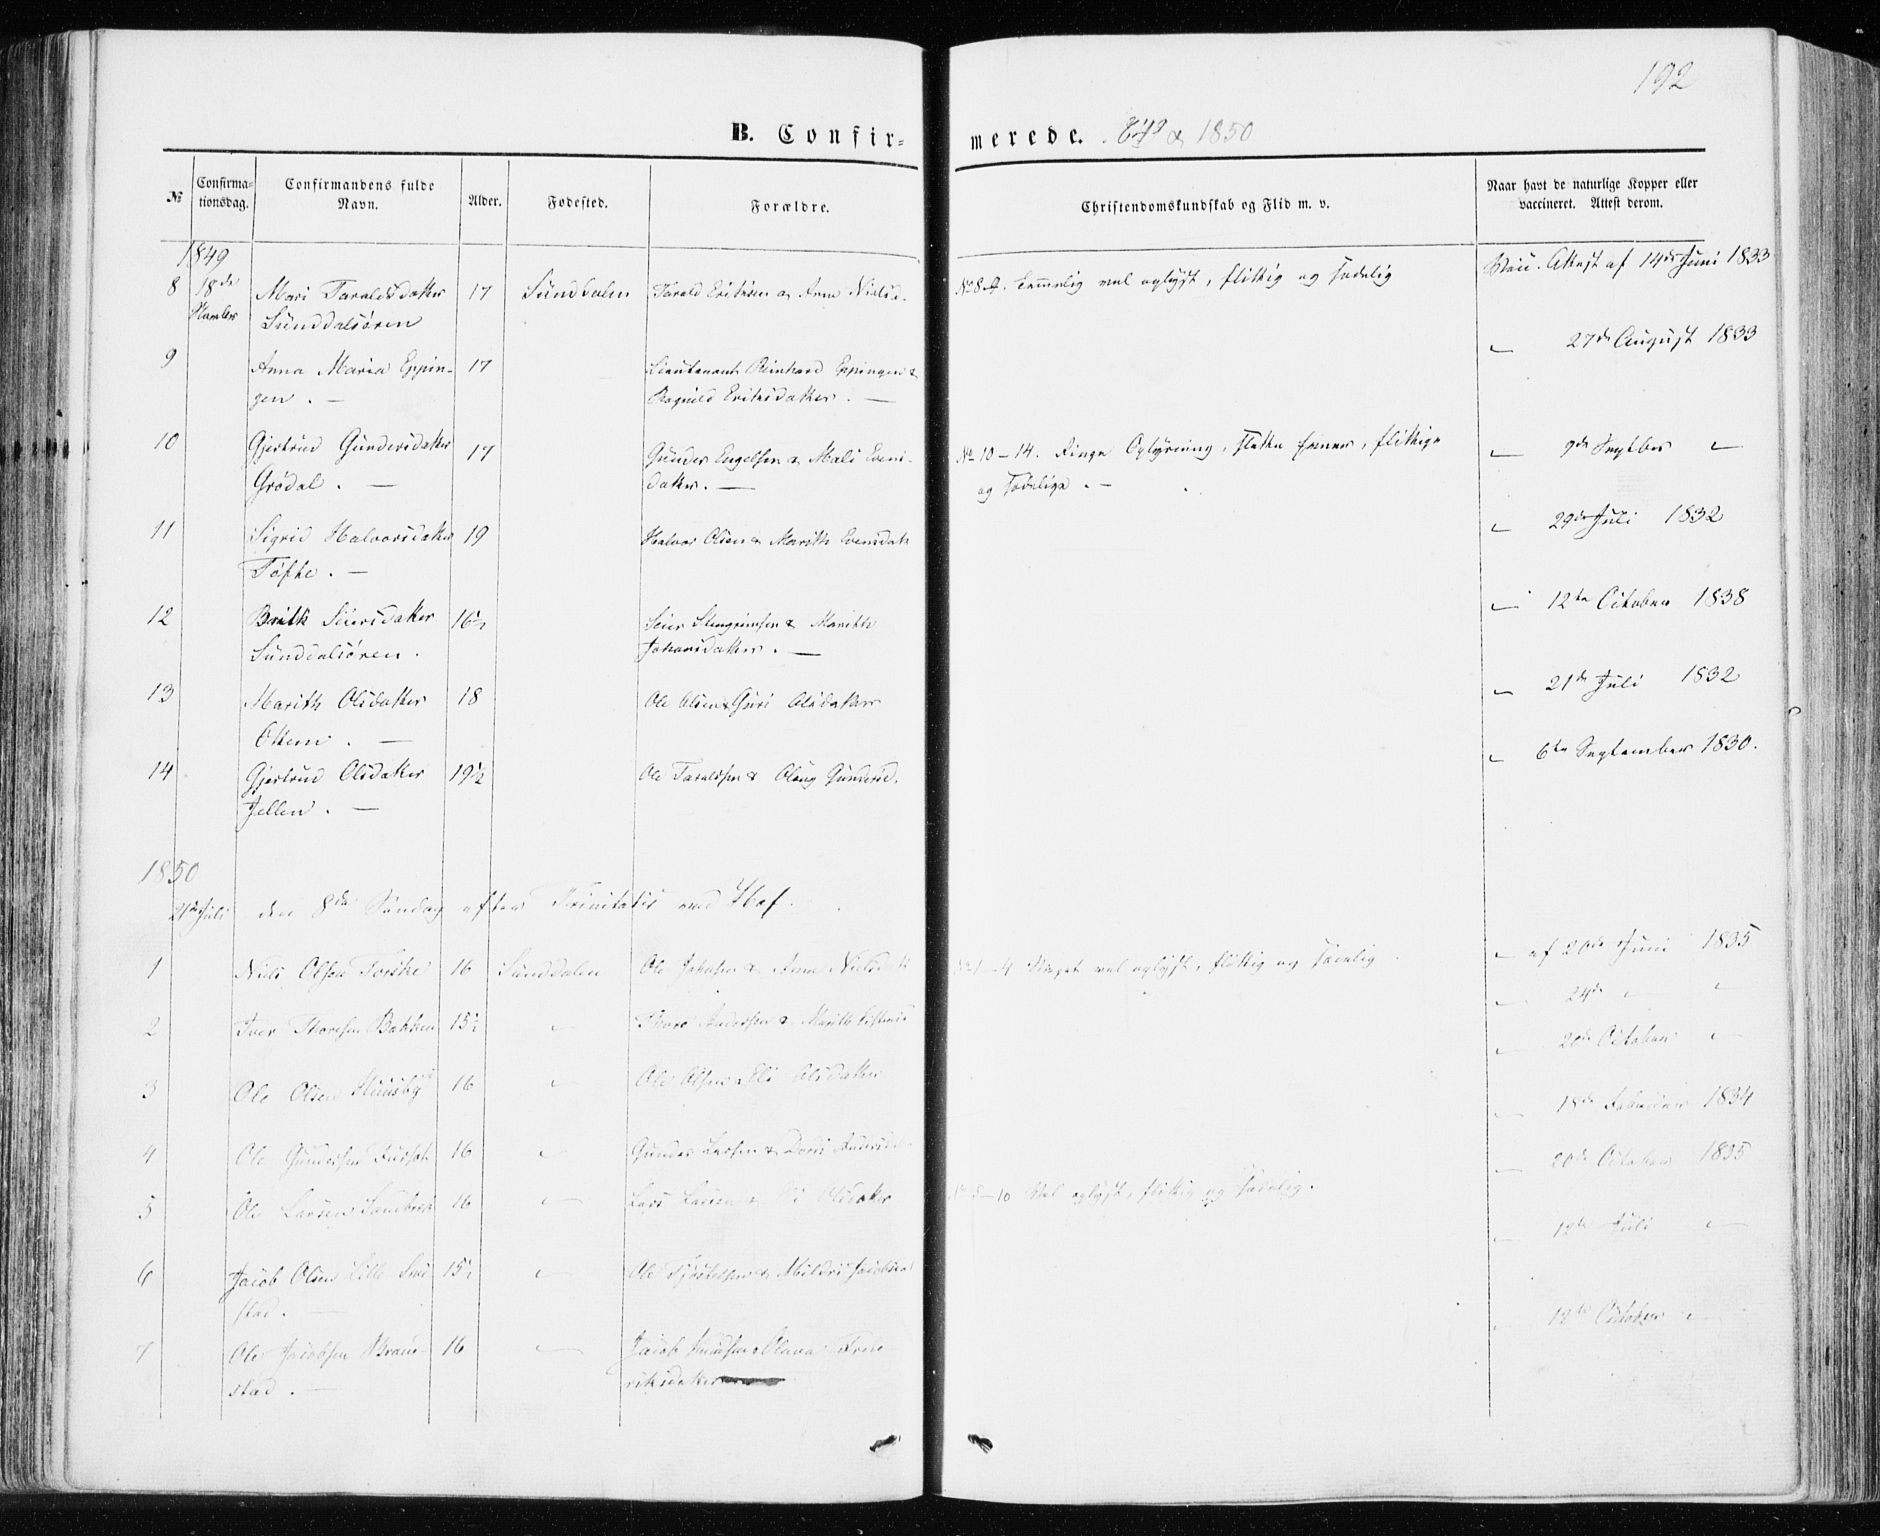 192
B. Confir- merede. 1849 & 1850
№ Confirma-tionsdag. Confirmandens fulde Navn. Alder. Fødested. Forældre. Christendomskundskab og Flid m. v. Naar havt de naturlige Kopper eller vaccineret. Attest derom.
1849
8 18de Mari Taraldsdatter 17 Sunddalen Tarald Erichsen og Anne Nielsd. No 8-9. Temmelig vel oplyst, flittig og sædelig Vacc. Attest af 14de Juni 1833
Sunddalsøren
9 Anna Maria Eppin- 17 Lieutenant Reinhard Eppingen & 27de August 1833
gen. — Ragnild Erichsdatter. —
10 Gjertrud Gundersdatter 17 Gunder Engelsen & Mali Evens- No 10-14. Ringe Oplysning, slette Evner, flittige 9de Septber
Grødal. — datter. — og sædelige. —
11 Sigrid Halvorsdatter 19 Halvor Olsen & Marith Evensdatt 29de Juli 1832
Tøfte. —
12 Brith Seiersdatter 16½ Seier Stengrimsen & Marith 12te October 1838
Sunddalsøren. Johansdatter. —
13 Marith Olsdatter 18 Ole Olsen & Guri Olsdatter 21de Juli 1832
Ottem. —
14 Gjertrud Olsdatter 19½ Ole Taraldsen & Olaug Gundersd. 6te September 1830.
Jellen. —
1850
21de Juli den 8de Søndag efter Trinitatis ved Hof.
1 Niels Olsen Torske 16 Sunddalen Ole Johnsen & Anne Nielsdatt No 1-4 Meget vel oplyst, flittig og sædelig af 20de Juni 1835
2 Iver Thoresen Bakken 15½ Thore Andersen & Marith 24de
3 Ole Olsen Huusby 16 Ole Olsen & Eli Olsdatter 20de October
4 Ole Gundersen 16 Gunder Larsen & Dorti Andersd. 18de Februar 1834
5 Ole Larsen 16 Lars Larsen & Olsdatter No 5-10 Vel oplyst, flittig og sædelig. 20de October 1835
6 Jacob Olsen Lille 15½ Ole & Mildri Jacobsd 12te Juli
stad. —
7 Ole Jacobsen 16 Jacob Knudsen & Olava 12te October
stad. — riksdatter